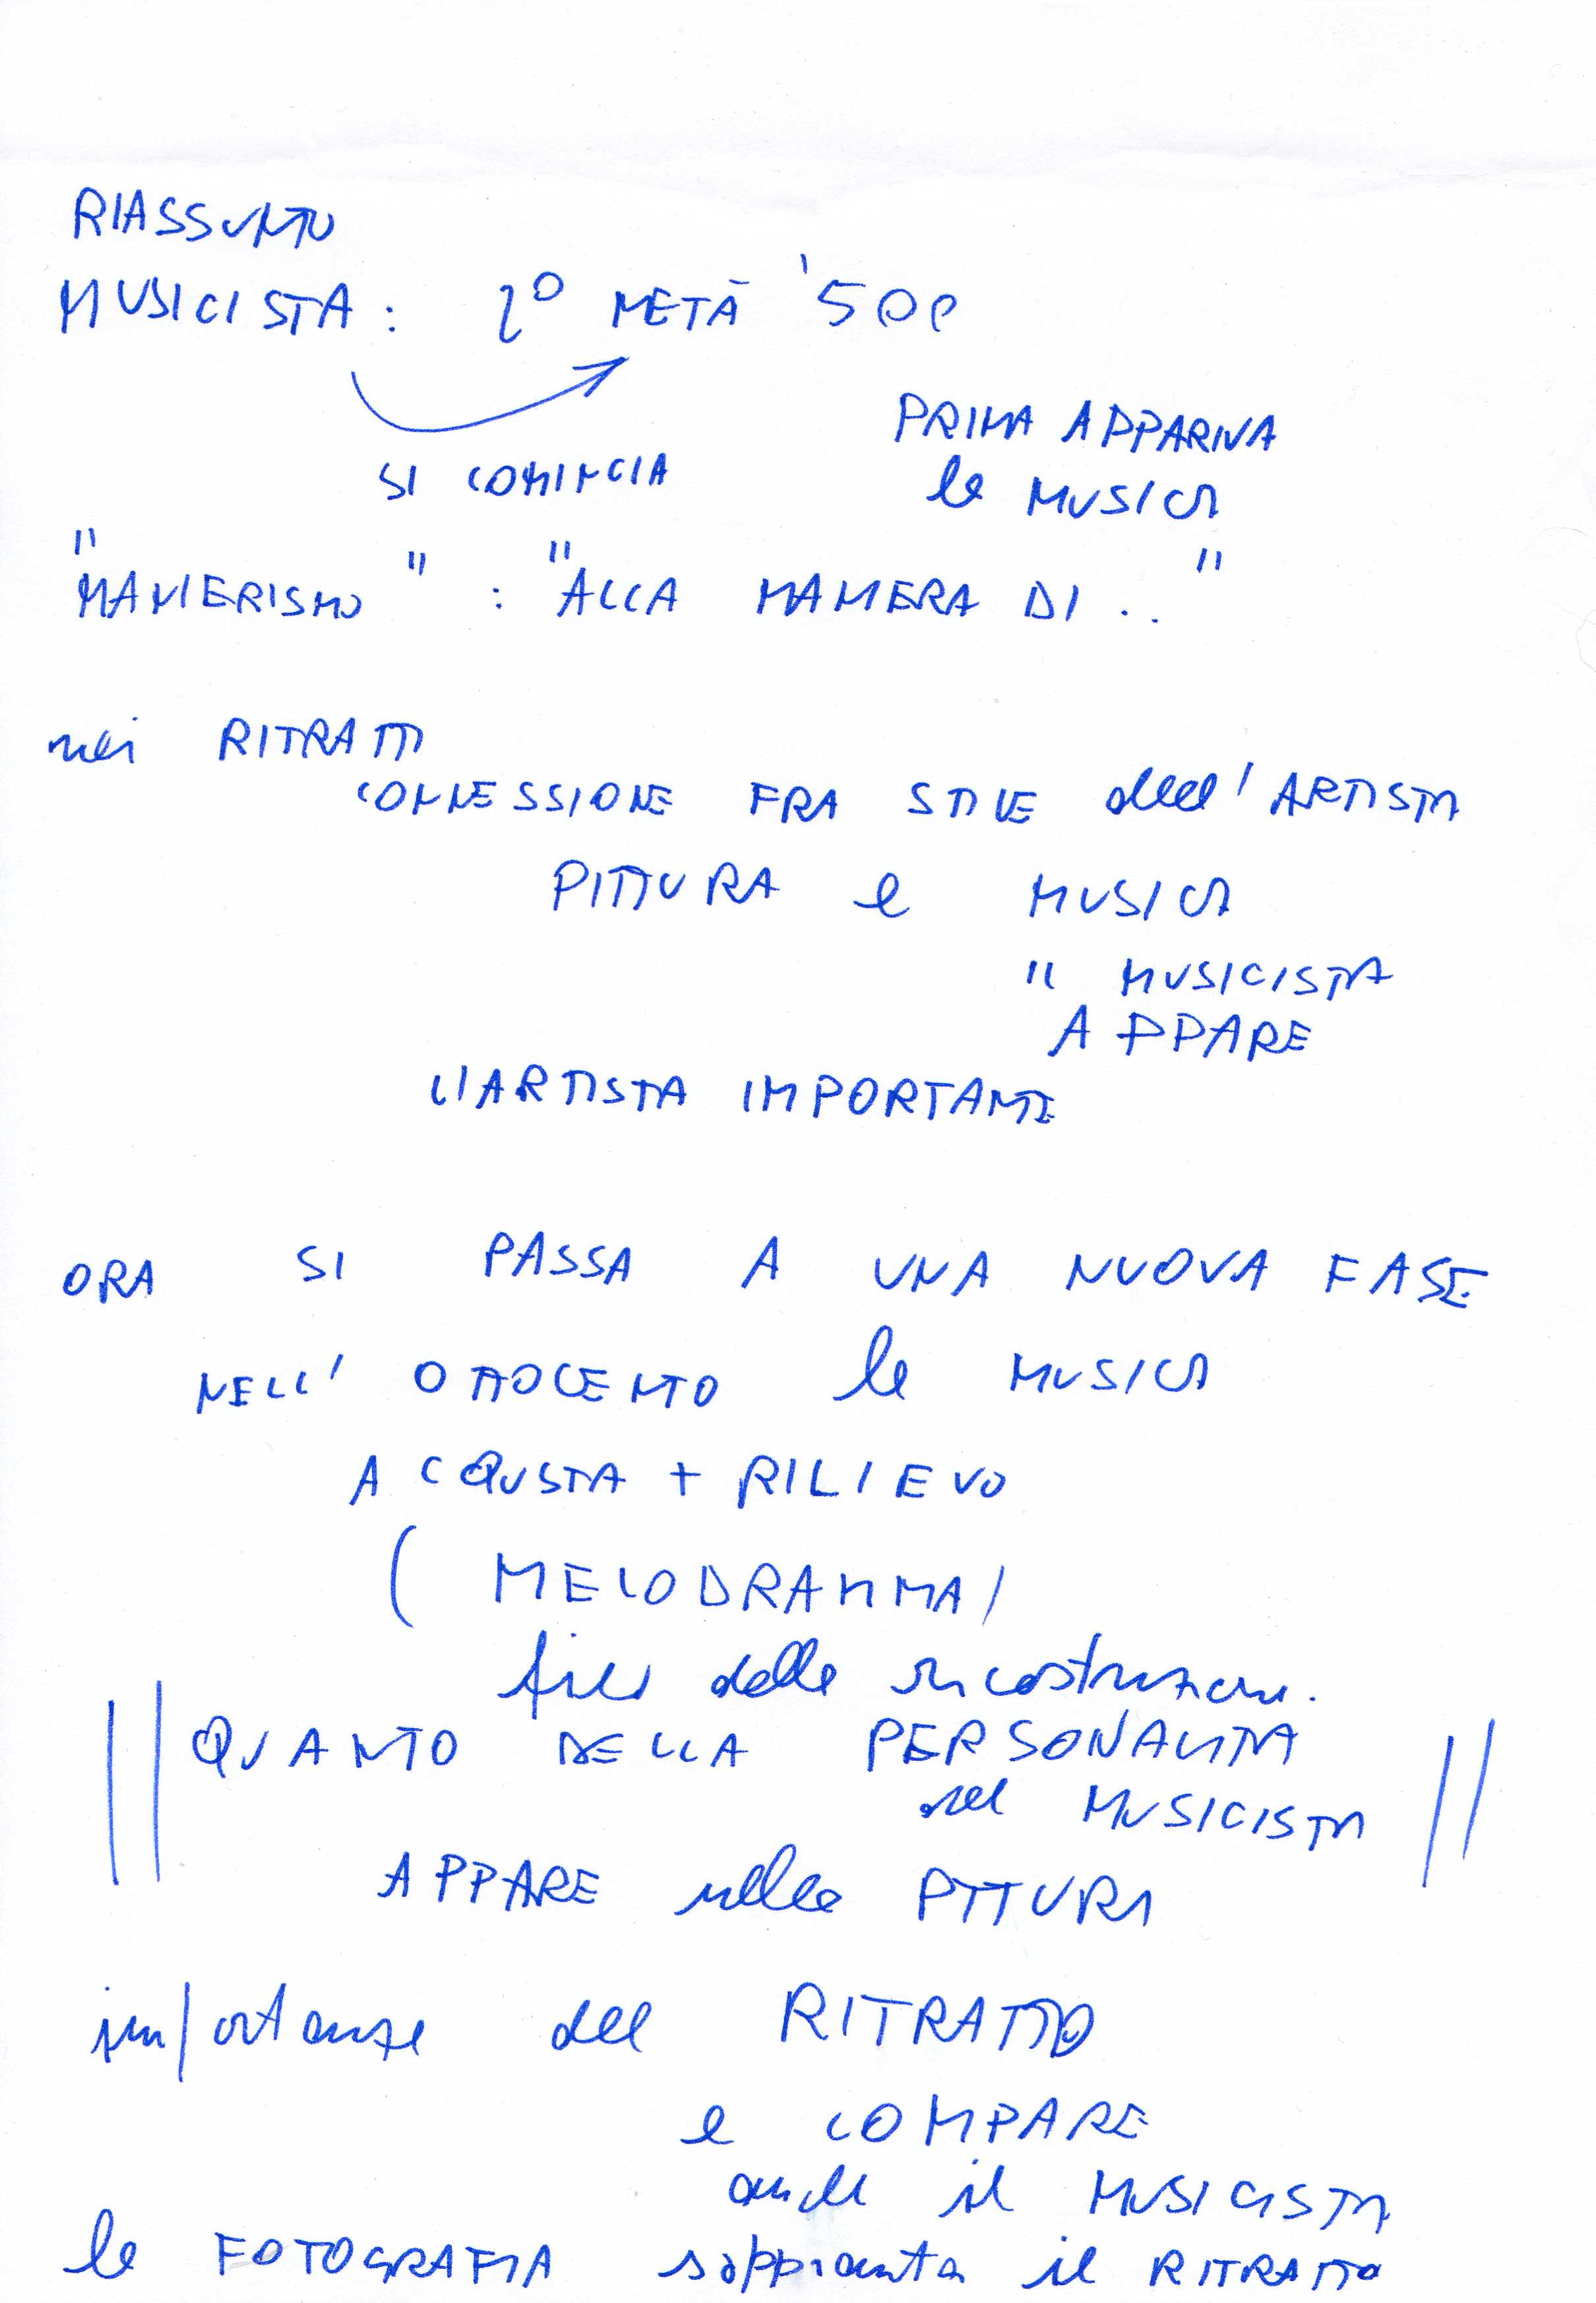 RIASSUNTO
MUSICISTA: 2° METÀ '500
PRIMA APPARIVA
SI COMINCIA la MUSICA
"MANIERISMO" : "ALLA MANIERA DI .."
nei RITRATTI
CONNESSIONE FRA STILE dell'ARTISTA
PITTURA e MUSICA
IL MUSICISTA
APPARE
L'ARTISTA IMPORTANTE
ORA SI PASSA A UNA NUOVA FASE
NELL'OTTOCENTO la MUSICA
ACQUSTA + RILIEVO
(MELODRAMMA)
della
QUANTO DELLA PERSONALITA
del MUSICISTA
APPARE nella PITTURA
importanza del RITRATTO
e COMPARE
anche il MUSICISTA
la FOTOGRAFIA soppianta il RITRATTO